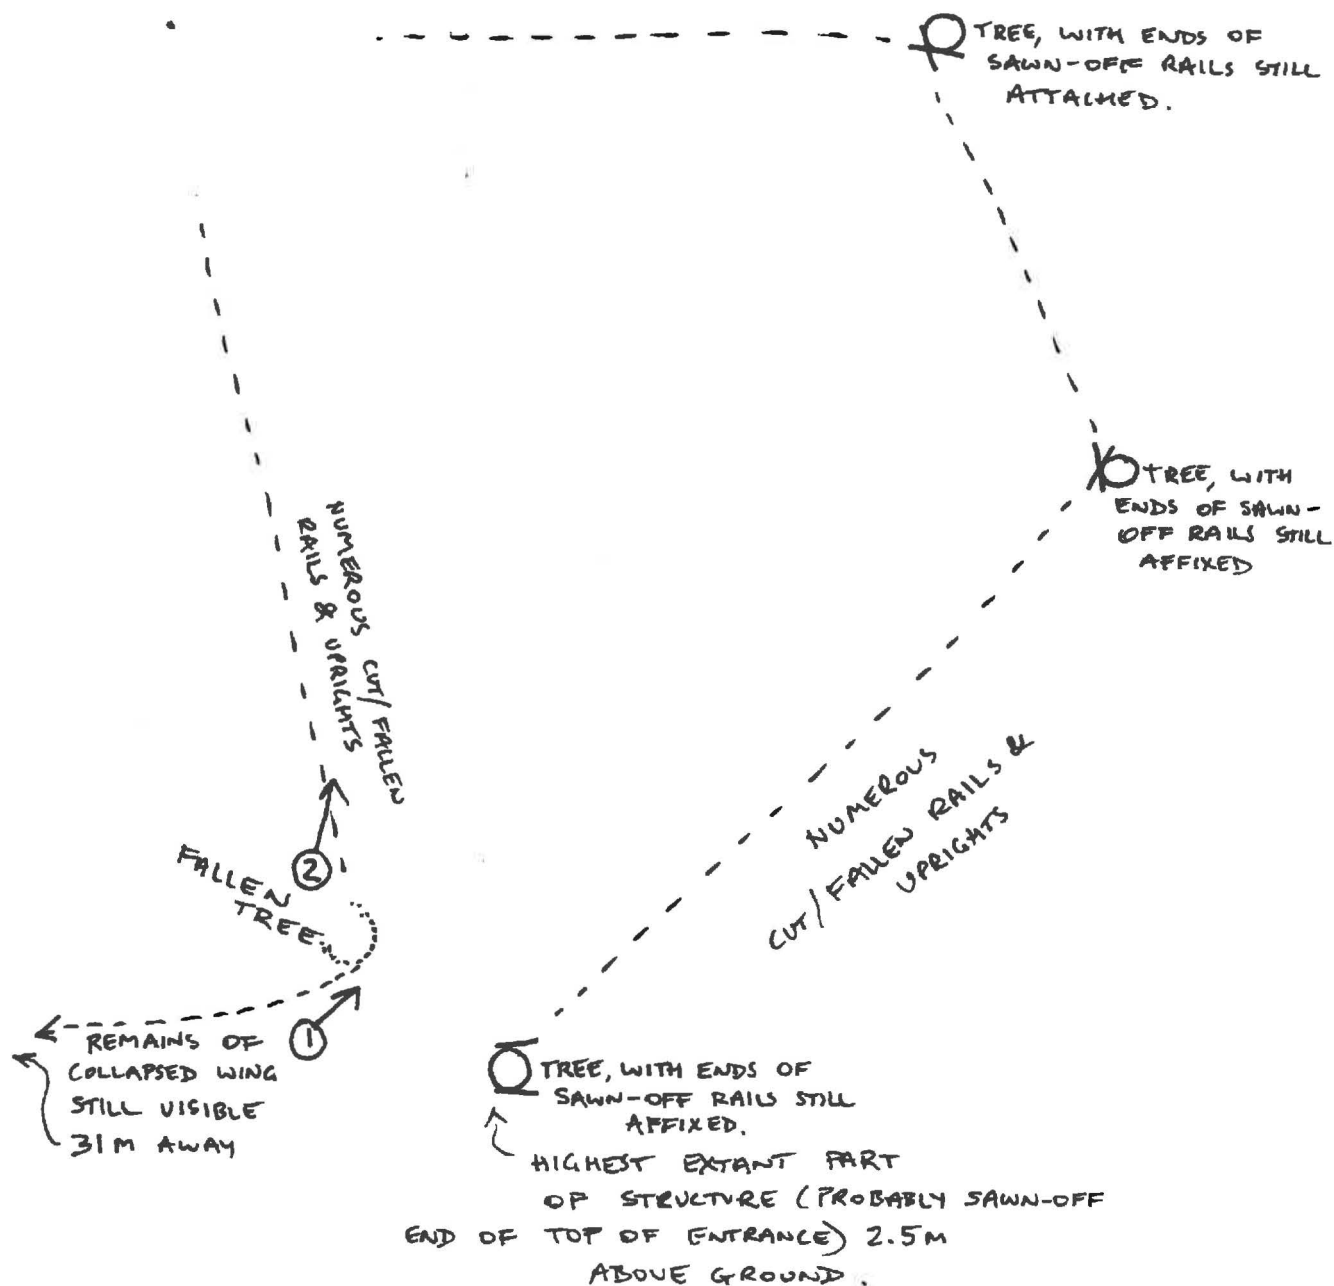 TREE, WITH ENDS OF
SAWN-OFF RAILS STILL
ATTACHED.
TREE, WITH
ENDS OF SAWN-
OFF RAILS STILL
AFFIXED
NUMEROUS CUT/FALLEN
RAILS & UPRIGHTS
NUMEROUS
CUT/FALLEN RAILS &
UPRIGHTS
2
FALLEN
TREE
1
REMAINS OF
COLLAPSED WING
STILL VISIBLE
31M AWAY
TREE, WITH ENDS OF
SAWN-OFF RAILS STILL
AFFIXED.
HIGHEST EXTANT PART
OF STRUCTURE (PROBABLY SAWN-OFF
END OF TOP OF ENTRANCE) 2.5M
ABOVE GROUND.